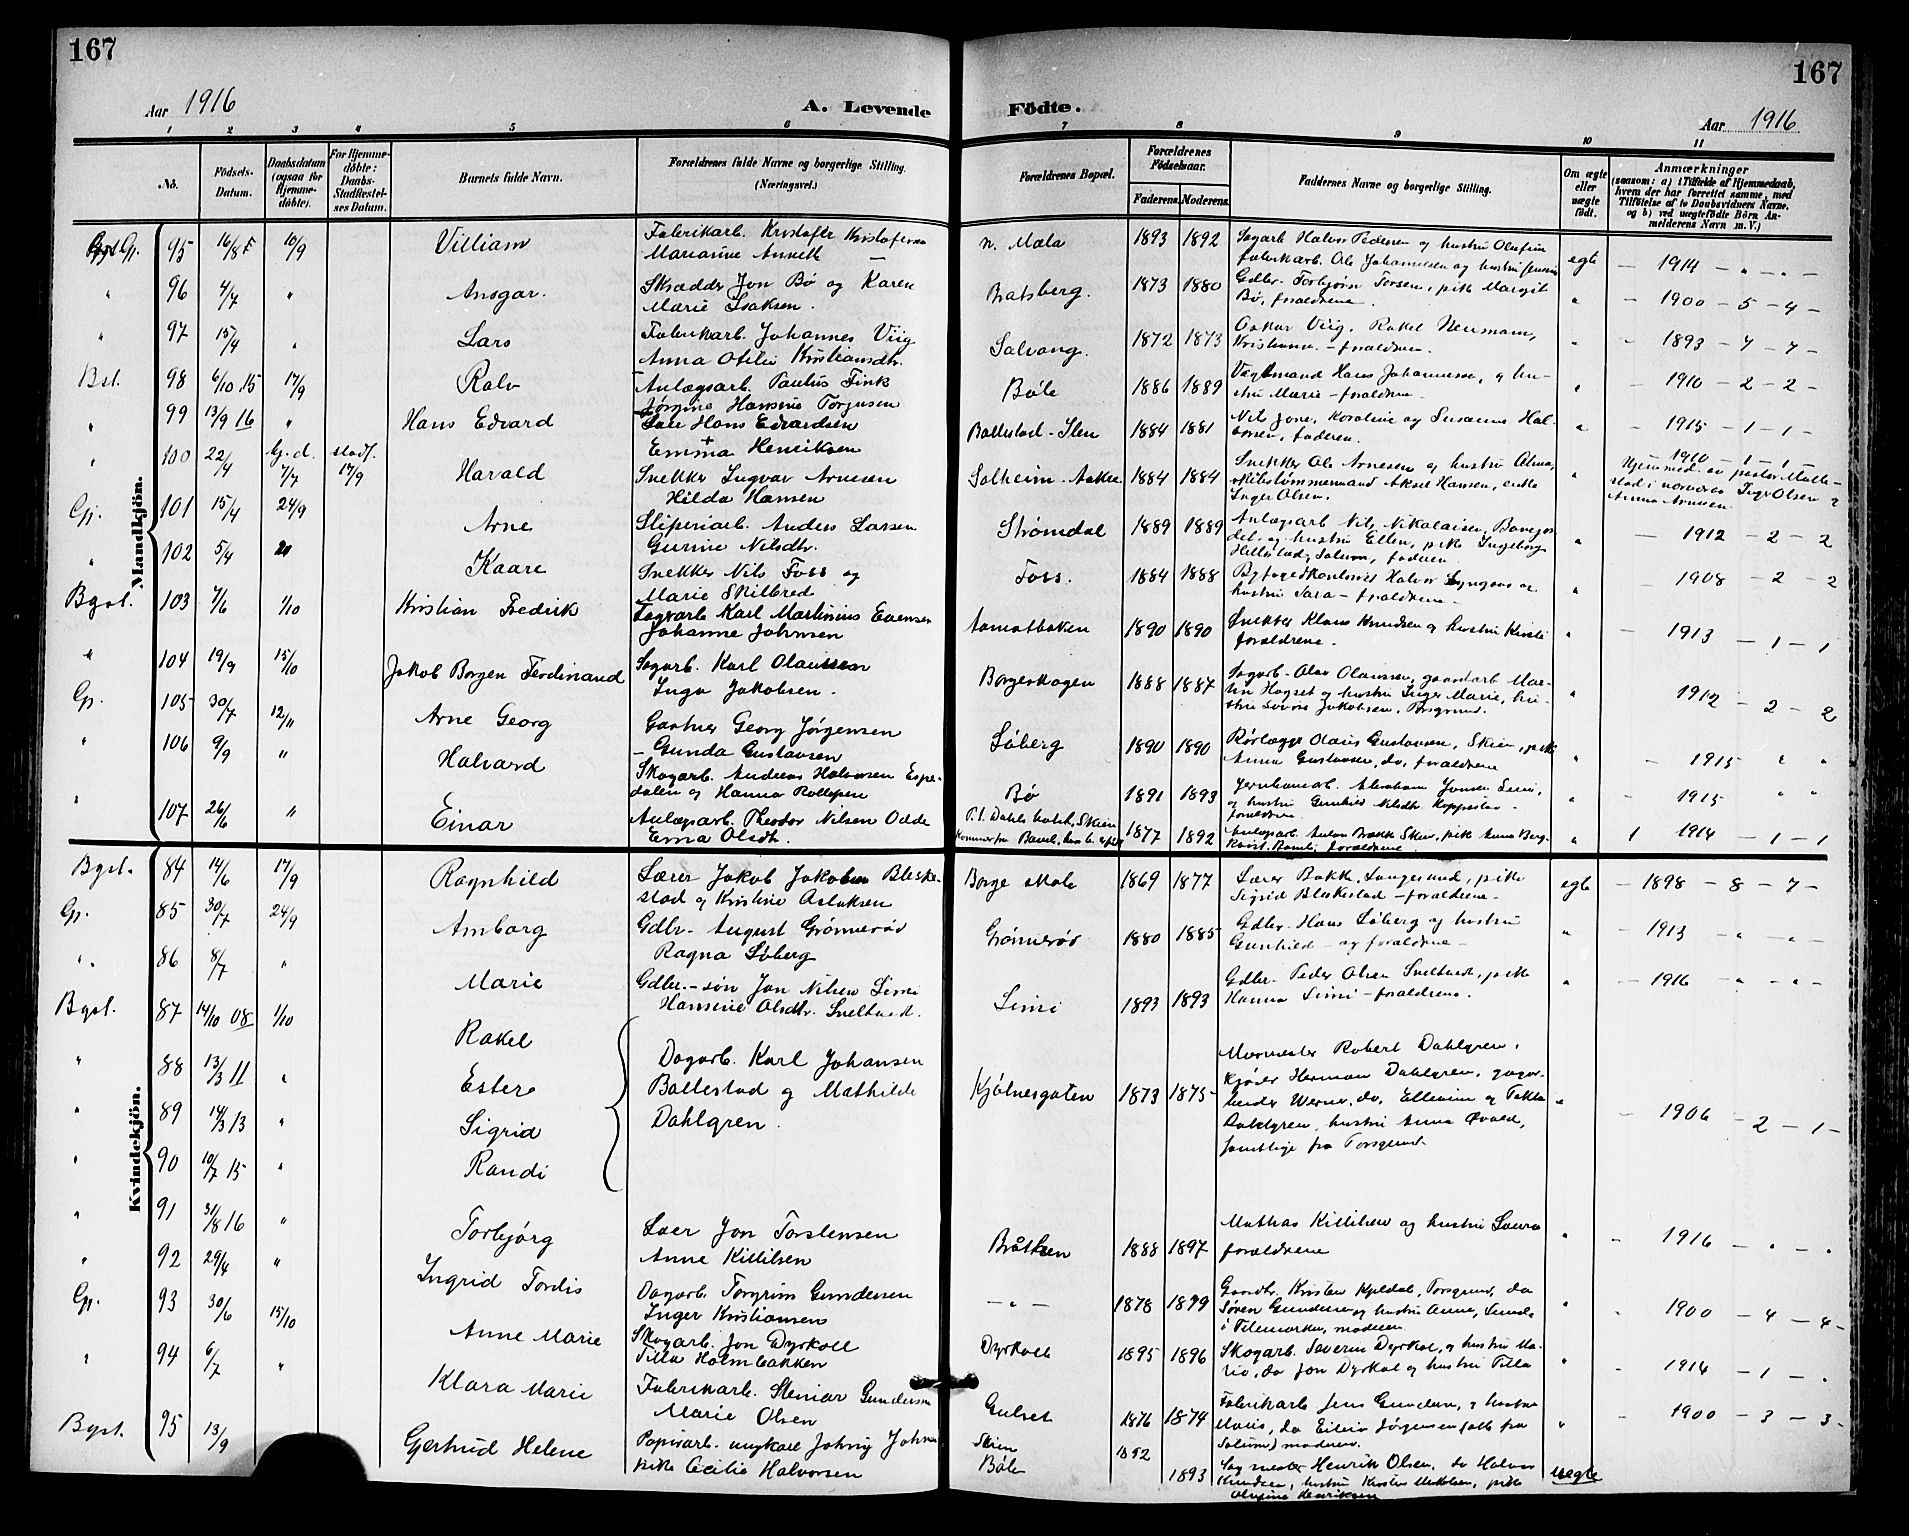 167
167
Aar 1916
A. Levende
Födte.
Aar 1916
1 2 3 4 5 6 7 8 9 10 11
No.
Födsels-Datum.
Daabsdatum (ogsaa for Hjemme-döbte).
For Hjemme-döbte: Daabs-Stadfæstel-ses Datum.
Barnets fulde Navn.
Forældrenes fulde Navne og borgerlige Stilling. (Næringsvei.)
Forældrenes Bopæl.
Forældrenes Födselsaar.
Faderens. Moderens.
Faddernes Navne og borgerlige Stilling.
Om ægte eller uægte födt.
Anmærkninger
(saasom: a) i Tilfælde af Hjemmedaab, hvem der har forrettet samme, med Tilföielse af to Daabsvidners Navne, og b) ved uægtefödte Börn Anmelderens Navn m. V.)
Mandkjön.
Gp. 95 16/8 15 10/9 Villiam
Fabrikarb. Kristofer Kristofersen
Marianne Anneth
n. Mæla 1893 1892
egte — 1914 — " — " —
" 96 4/7 " Ansgar.
Skrædder Jon Bø og Karen
Marie Isaksen.
Bratsberg. 1873 1880
Gdbr. Torbjørn Torsen, pike Margit
Bø, forældrene.
" — 1900 — 5 — 4 —
" 97 15/4 " Lars
Fabrikarb. Johannes Viig
Anna Otilie Kristiansdtr.
Salvang. 1872 1873
Oskar Viig, Rakel Neumann,
Kristiania — forældrene.
" — 1893 — 7 — 7 —
Bst. 98 6/10 15 17/9 Ralv
Anlægsarb. Paulus Fink
Jørgine Hansine Torgusen
Bøle 1886 1889
Vægtmand Hans Johannesen, og hustru Marie — forældrene.
" — 1910 — 2 — 2 —
" 99 13/9 16 " Hans Edvard
Hans Edvardsen
Emma Henriksen
Ballestad - Slen 1884 1881
" — 1915 — 1 — 1 —
" 100 22/4 Gj.d. 7/7 stadf. 17/9 Harald
Snekker Ingvar Arnesen
Hilda Hansen
Solheim - Aakre 1884 1884
Snekker Ole Arnesen og hustru Alma,
Aksel Hansen, enke
Inger Olsen.
1910 — 1 — 1 —
Hjemmed. av pastor
Inger Olsen og
Anna Arnesen
Gj. 101 15/4 24/9 Arne
Sliperiarb. Anders Larsen
Gurine Nilsdtr.
Strømdal 1889 1889
Anlægsarb Nils Nikolaisen,
og hustru Ellen, pike Ingeborg
Solum, faderen
" — 1912 — 2 — 2
" 102 5/4 " Kaare
Snekker Nils Foss og
Marie Skilbred
Foss. 1884 1888
hustru Sara — forældrene —
" — 1908 — 2 — 2
Bgst. 103 7/6 1/10 Kristian Fredrik
Karl Martinius Evensen
Johanne Johnsen
1890 1890
Snekker Klaus Knudsen og hustru Kirsti
forældrene.
" — 1913 — 1 — 1
" 104 19/9 15/10 Jakob Borgen Ferdinand
Sagarb. Karl Olaussen
Inga Jakobsen.
Borgeskogen 1888 1887
Sagarb. Olav Olaussen, gaardarb Martin Hogset og hustru Inger Marie, hustru Jakobsen, Porsgrund.
" 1912 — 2 — 2
Gp. 105 30/7 12/11 Arne Georg
Gartner Georg Jørgensen
Gunda Gustavsen
Løberg 1890 1890
Rørlægger Olaus Gustavsen, Skien, pike
Anna Gustavsen, do, forældrene
" — 1915 " "
" 106 9/9 " Halvard
Skogarb. Andreas Halvorsen Espedalen og Hanna Rollefsen
Bø 1891 1893
Jernbanearb. Abraham Jonsen Limi,
og hustru Gunhild Nilsdtr. Koppestad —
forældrene
" — 1915 " "
" 107 26/6 " Einar
Anlægsarb. Theodor Nilsen Odde
Erna Olsdtr.
P. t. Dahls hotel, Skien
1877 1892
Anlægsarb. Anton Brekk Skien, pike Anna Bergkvist, Bamle, forældrene
" 1 1914 — 1 — 1
Kvindekjön.
Bgst. 84 14/6 17/9 Ragnhild
Lærer Jakob Jakobsen Blekestad og Kristine Aslaksen
Borge skole 1869 1877
Lærer Bakk, Langesund, pike
Sigrid Blekestad — forældrene —
egte — 1898 — 8 — 7 —
Gp. 85 30/7 24/9 Amborg
Gdbr. August Grønnerød
Ragna Løberg
Grønnerød 1880 1885
Gdbr. Hans Løberg og hustru
Gunhild — og forældrene —
" — 1913 — " — " —
" 86 8/7 " Marie
Gdbr. — søn Jon Nilsen Limi
Hansine Olsdtr. Sneltved.
Limi 1893 1893
Gdbr. Peder Olsen Sneltvedt, pike
Hanna Limi — forældrene.
" — 1916 — " — " —
Bgst. 87 14/10 08 1/10 Rakel
" 88 13/3 11 " Ester
" 89 14/3 13 " Sigrid
" 90 10/7 15 " Randi
Dagarb. Karl Johansen
Ballestad og Mathilde
Dahlgren.
Kjølnesgaten 1873 1875
Murmester Robert Dahlgren,
Herman Dahlgren,
Werner, do, Ellevine og Tekla
Dahlgren, hustru Anna Øvald,
samtlige fra Porsgrund.
" — 1906 — 2 — 1 —
" 91 31/8 16 " Torbjørg
Lærer Jon Torstensen
Anne Killilsen
Bråtten 1888 1897
Mathias Killilsen og hustru Laura
forældrene
" — 1916 — " — "
" 92 29/4 " Ingrid Tordis
Dagarb. Torgrim Gundersen
Inger Kristiansen
— " — 1878 1879
Gaardbr. Kristen Kjeldal, Porsgrund, do
Søren Gundersen og hustru Anne,
i Telemarken, moderen
" " 1900 — 4 — 4 —
Gp. 93 30/6 15/10 Anne Marie
Skogarb. Jon Dyrkoll
Tilla Holmbakken
Dyrkoll 1895 1896
Skogarb. Severin Dyrkol, og hustru Marie, do Jon Dyrkol og hustru Tilla
" — 1914 — 1 — "
" 94 6/7 " Klara Marie
Fabrikarb. Steinar Gundersen
Marie Olsen
Gulset 1876 1874
Fabrikarb Jens Gundersen, og hustru
Maria, do Eilev Jørgensen (alle fra
Solum) moderen.
" — 1900 — 3 — 3 —
Bgst. 95 13/9 Gjertrud Helene
Papirarb. ungkarl Johnny Johnsen
pike Cecilie Halvorsen
Skien 1892
Bøle 1893
Sagmester Henrik Olsen, do Halvor
Knudsen, hustru Kirstine Mikkelsen, pike
Olufine Henriksen
uegte